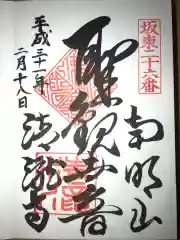 坂東二十六番
南明山
聖観世音
平成三十一年
二月十八日
清瀧寺